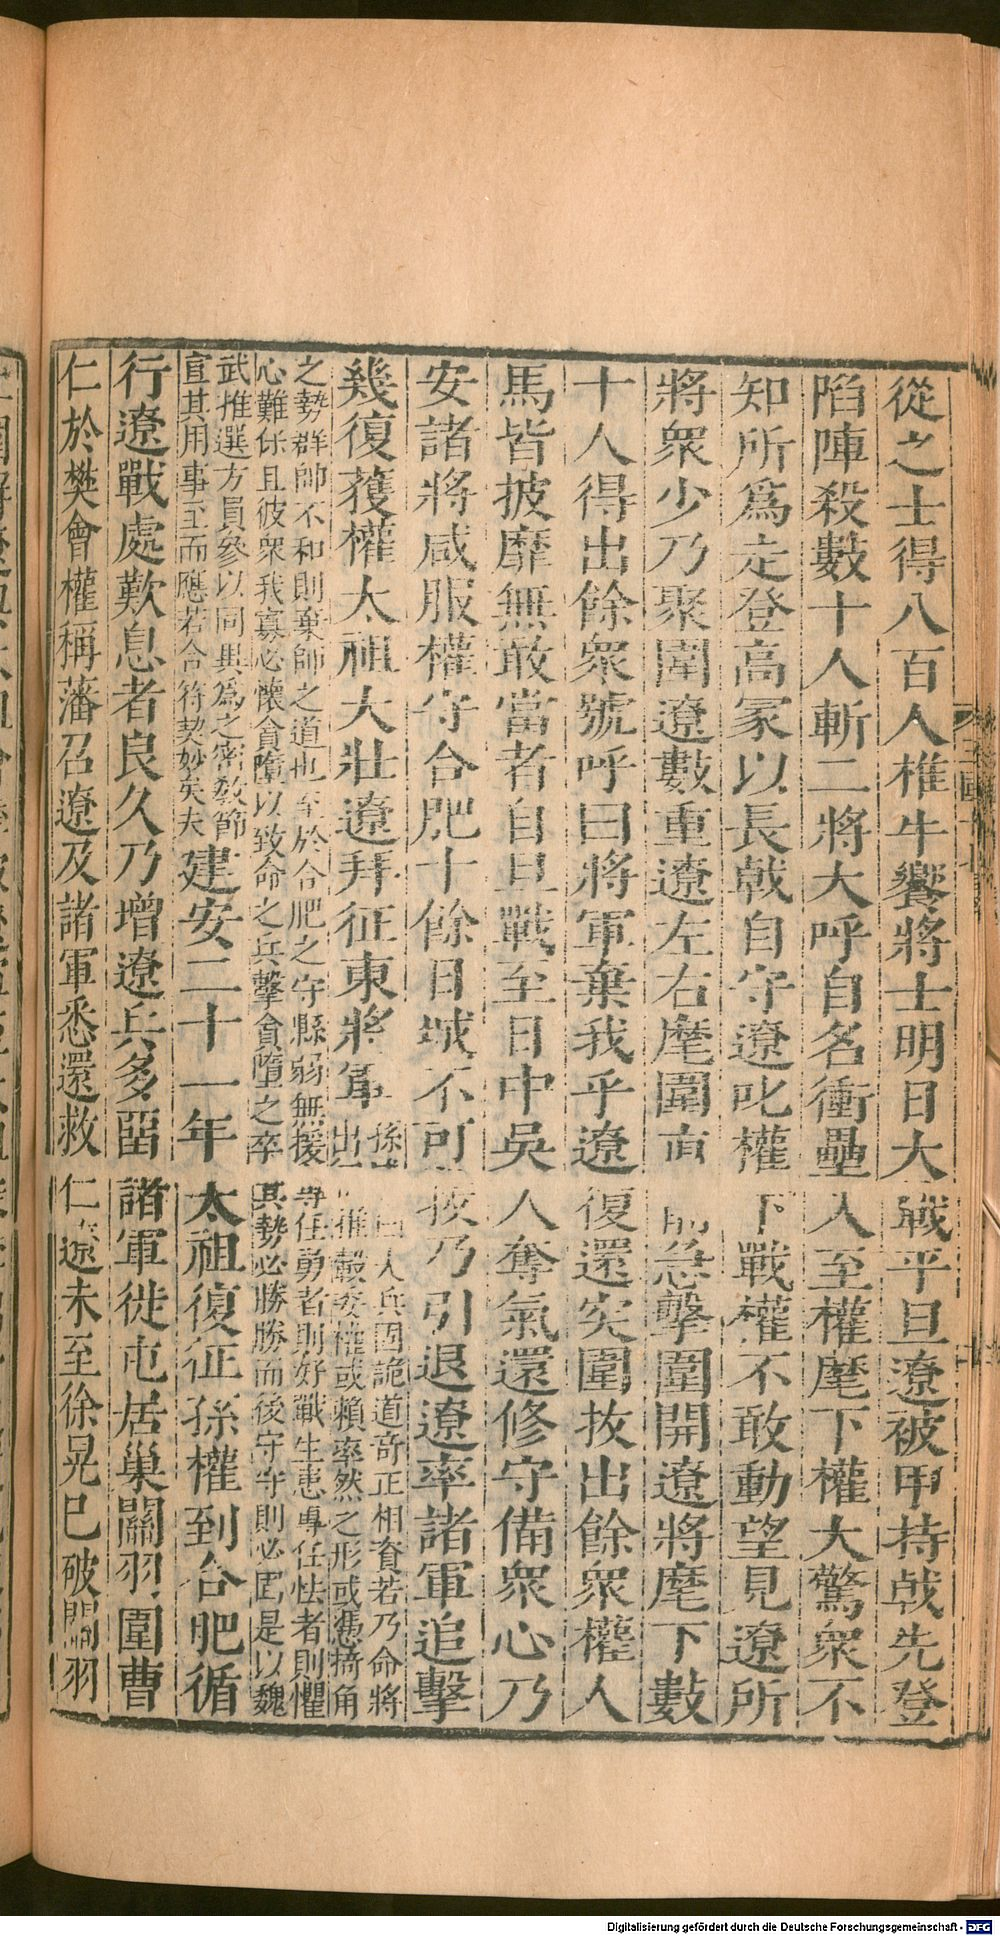 從之士得八百人椎牛饗將士明日大戰平旦遼被甲持戟先登
陷陣殺數十人斬二將大呼自名衝壘入至權麾下權大驚衆不
知所爲走登高冢以長戟自守遼叱權下戰權不敢動望見遼所
將衆少乃聚圍遼數重遼左右麾圍直前急擊圍開遼將麾下數
十人得出餘衆號呼曰將軍棄我乎遼復還突圍拔出餘衆權人
馬皆披靡無敢當者自旦戰至日中吳人奪氣還修守備衆心乃
安諸將咸服權守合肥十餘日城不可拔乃引退遼率諸軍追擊
幾復獲權太祖大壯遼拜征東將軍
孫曰夫兵固詭道奇正相資若乃命將
出推轂委權或賴率然之形或憑掎角
之勢群帥不和則棄師之道也至於合肥之守縣弱無援專任勇者則好戰生患專任怯者則懼
心難保且彼衆我寡必懷貪墮以致命之兵擊貪墮之卒其勢必勝勝而後守守則必固是以魏
武推選方員參以同異爲之密教節
宣其用事至而應若合符契妙矣夫
建安二十一年太祖復征孫權到合肥循
行遼戰處歎息者良久乃增遼兵多留諸軍徙屯居巢關羽圍曹
仁於樊會權稱藩召遼及諸軍悉還救仁遼未至徐晃已破關羽
Digitalisierung gefördert durch die Deutsche Forschungsgemeinschaft - DFG